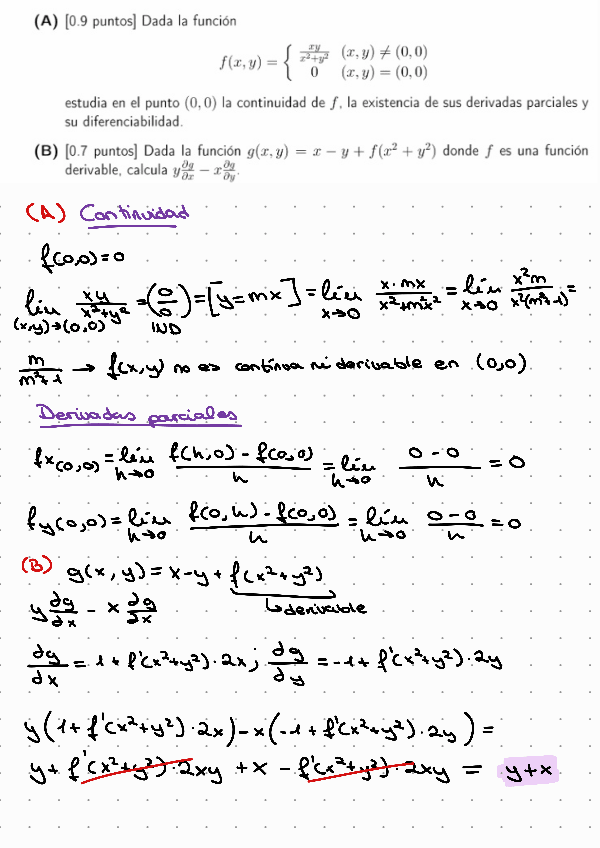 (A) [0.9 puntos] Dada la función
f(x, y) = { xy/(x²+y²) (x, y) ≠ (0, 0)
0 (x, y) = (0, 0)
estudia en el punto (0, 0) la continuidad de f, la existencia de sus derivadas parciales y
su diferenciabilidad.
(B) [0.7 puntos] Dada la función g(x, y) = x − y + f(x² + y²) donde f es una función
derivable, calcula y ∂g/∂x − x ∂g/∂y.
(A) Continuidad
f(0,0)=0
lím (x,y)→(0,0) xy/(x²+y²) = (0/0) IND = [y=mx] = lím x→0 x·mx/(x²+m²x²) = lím x→0 x²m/(x²(m²+1)) =
m/(m²+1) → f(x,y) no es contínua ni derivable en (0,0)
Derivadas parciales
fx(0,0) = lím h→0 (f(h,0) - f(0,0))/h = lím h→0 (0-0)/h = 0
fy(0,0) = lím h→0 (f(0,h) - f(0,0))/h = lím h→0 (0-0)/h = 0
(B) g(x,y) = x-y + f(x²+y²)
y ∂g/∂x - x ∂g/∂x ↳derivable
∂g/∂x = 1 + f'(x²+y²)·2x; ∂g/∂y = -1 + f'(x²+y²)·2y
y(1+f'(x²+y²)·2x) - x(-1+f'(x²+y²)·2y) =
y + f'(x²+y²)·2xy + x - f'(x²+y²)·2xy = y+x